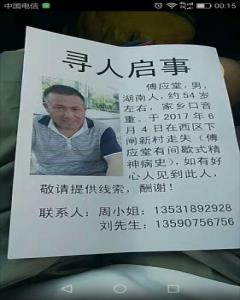 中国电信
00:15
寻人启事
傅应堂,男,
湖南人,约54岁
左右,家乡口音
重,于2017年6
月4日在西区下
闸新村走失(傅
应堂有间歇式精
神病史),如有好
心人见到此人,
敬请提供线索,酬谢!
联系人:周小姐:13531892928
刘先生:13590756756